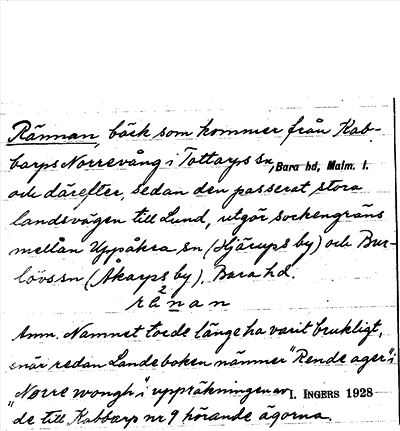 Rännan, bäck som kommer från Kab-
barps Norrevång i Tottarps sn, Bara hd, Malm. l.
och därefter, sedan den passerat stora
landsvägen till Lund, utgör sockengräns
mellan Uppåkra sn (Hjärups by) och Bur-
lövs sn (Åkarps by), Bara hd.
Anm. Namnet torde länge ha varit brukligt,
när redan Landeboken nämner "Rende ager" i
"Nørre wongh" i uppräkningen av I. INGERS 1928
de till Kabbarp nr 9 hörande ägorna.